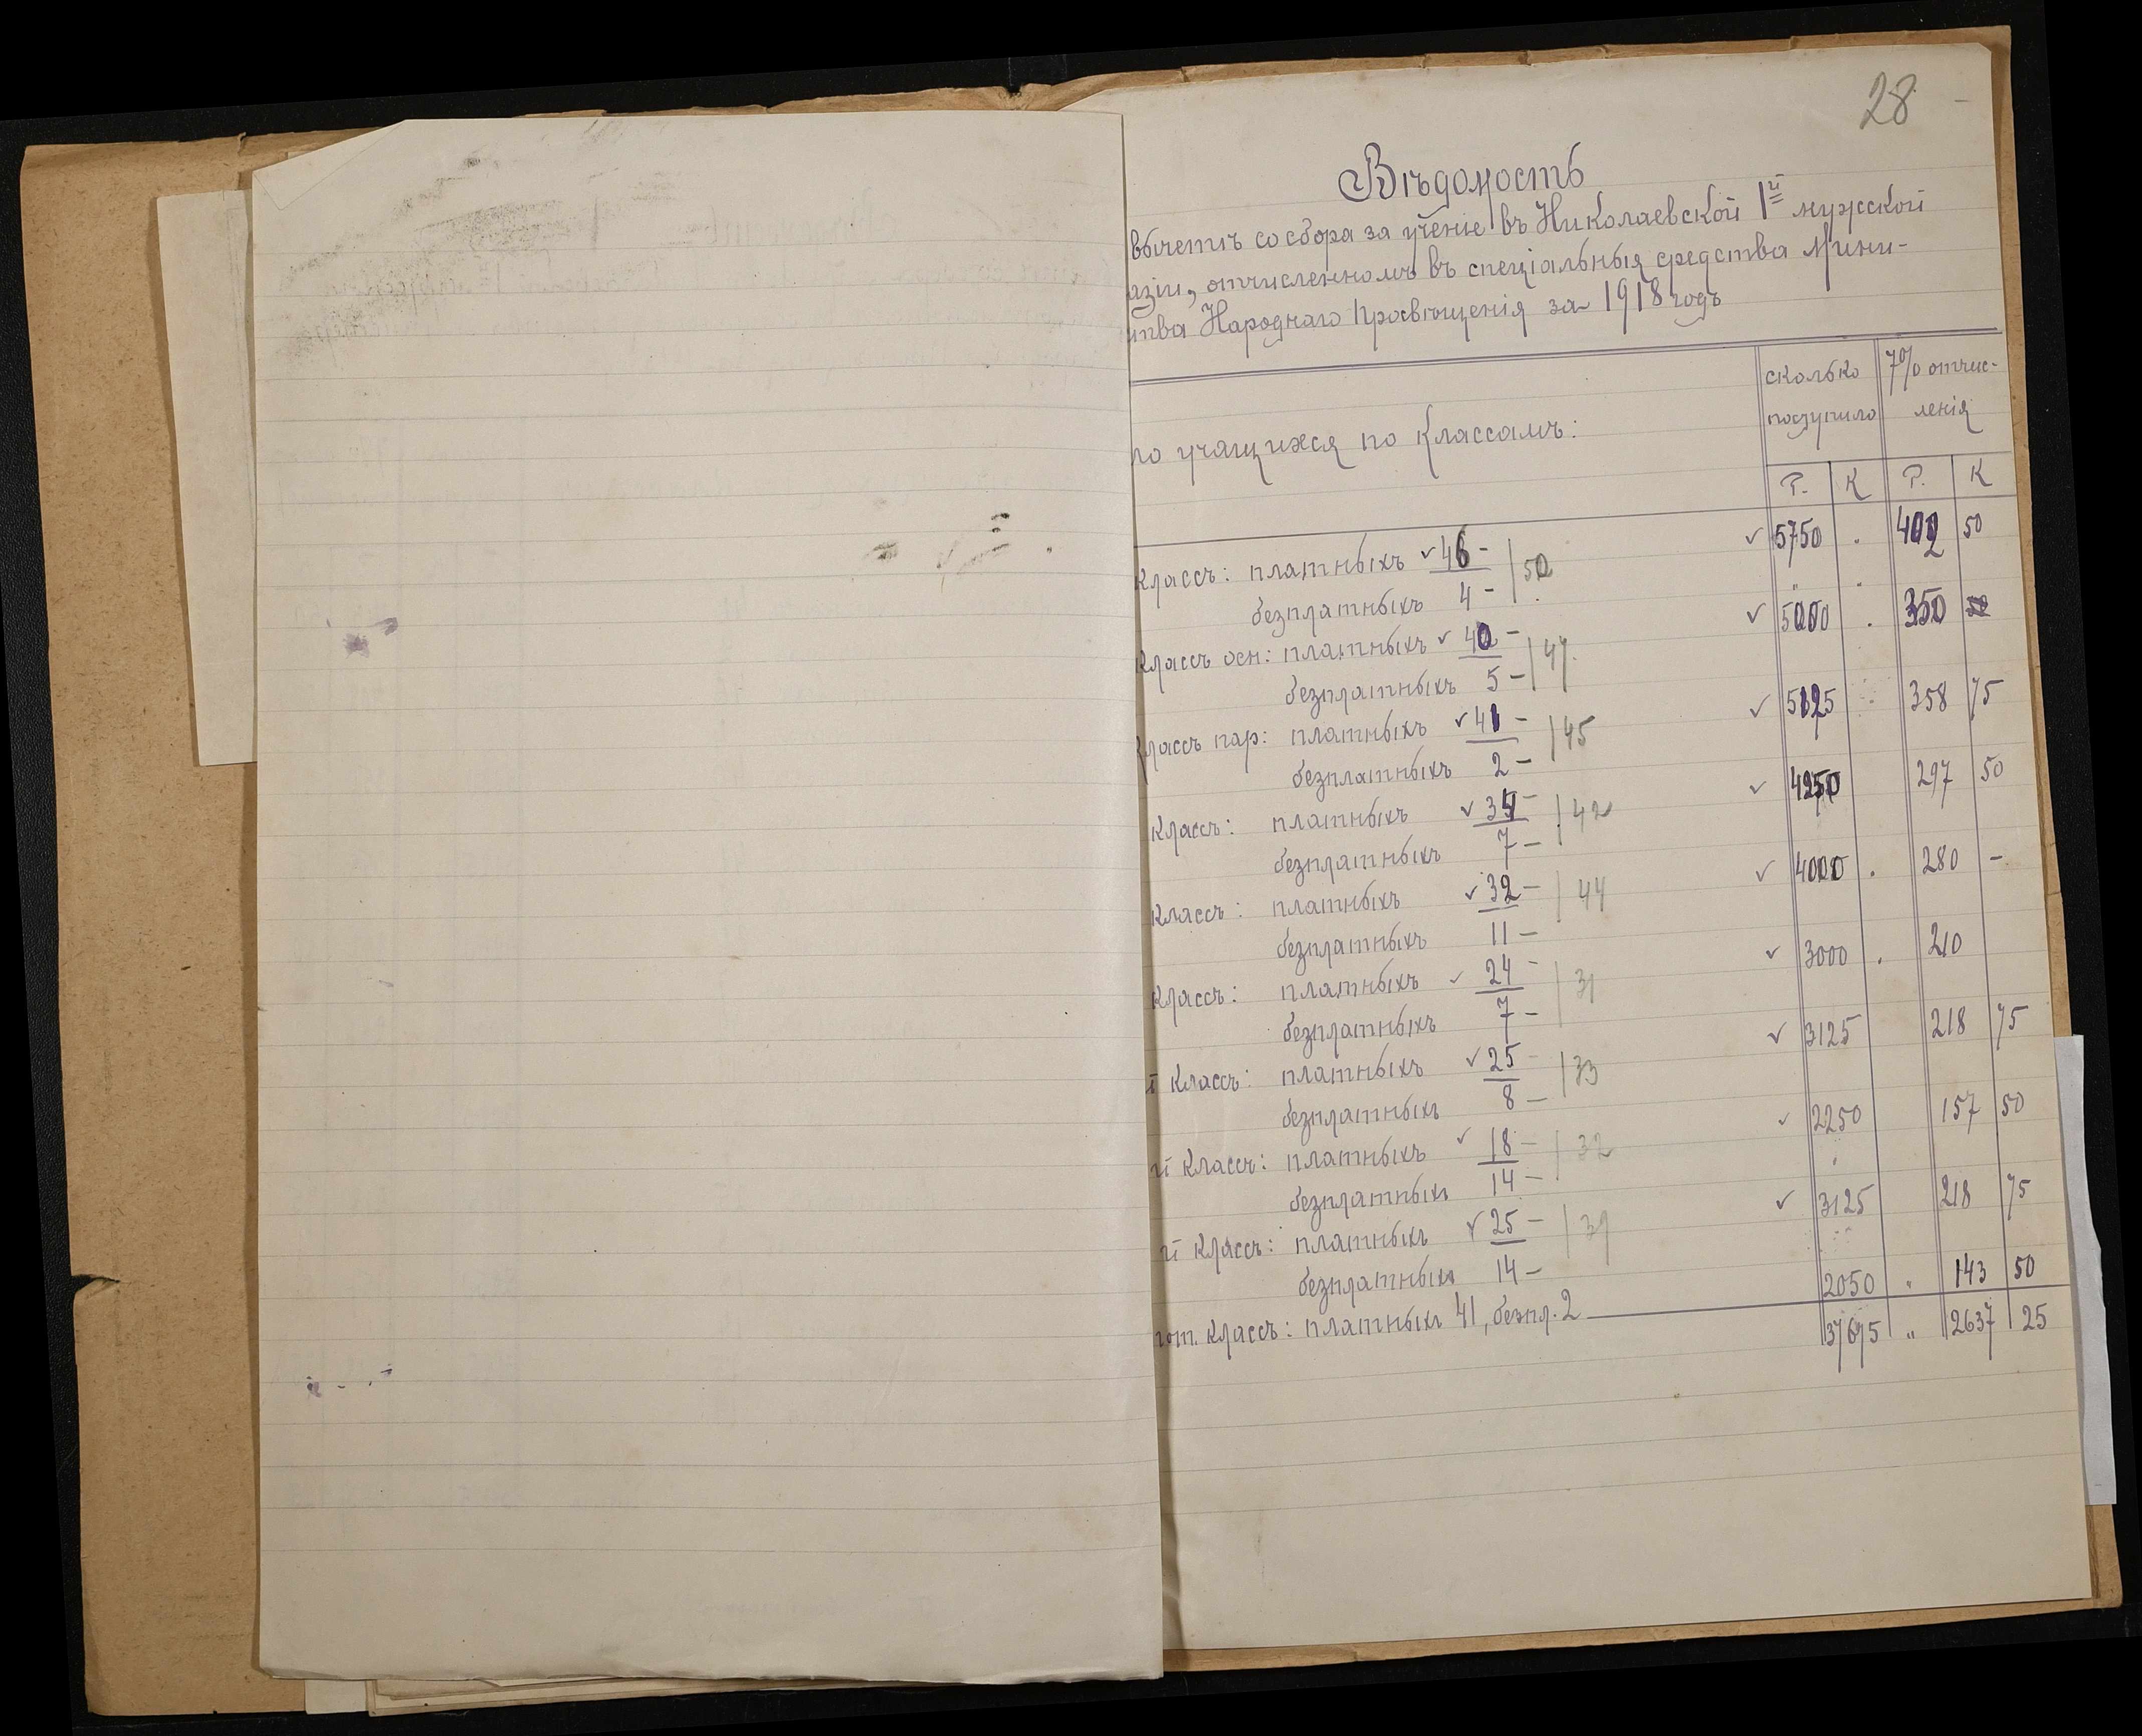 28
Вѣдомость
вычетѣ со сбора за ученіе въ Николаевской 1й мужской
азіи, отчисленномъ въ спеціальныя средства Мини-
тва Народнаго Просвѣщенія за 1918 годъ
ло учащихся по классамъ:
сколько поступило
7% отчис-
ленія
Р. К Р. К
Классъ: платныхъ 46 - 50 5750 . 402 50
безплатныхъ 4 -
Классъ осн: платныхъ 40 - 47 5000 . 350
безплатныхъ 5 -
Классъ пар: платныхъ 41 - 45 5125 358 75
безплатныхъ 2 -
Классъ: платныхъ 34 - 42 4250 297 50
безплатныхъ 7 -
Классъ: платныхъ 32 - 44 4000 . 280 -
безплатныхъ 11 -
Классъ: платныхъ 24 - 31 3000 . 210
безплатныхъ 7 -
й Классъ: платныхъ 25 - 33 3125 218 75
безплатныхъ 8 -
й Классъ: платныхъ 18 - 32 2250 157 50
безплатныхъ 14 -
й Классъ: платныхъ 25 - 39 3125 218 75
безплатныхъ 14 -
гот. классъ: платныхъ 41, безпл. 2 2050 " 143 50
37675 " 2637 25